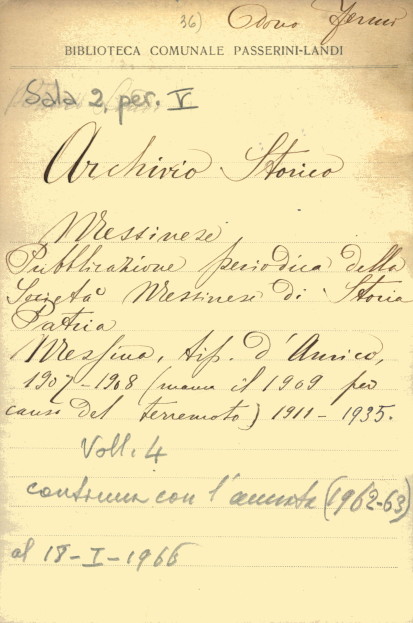 36) Dono Fermi
BIBLIOTECA COMUNALE PASSERINI-LANDI
Sala 2, per. V
Archivio Storico
Messinese
Pubblicazione periodica della
Società Messinese di Storia
Patria
Messina, tip. d'Amico,
1907-1908 (manca il 1909 per
causa del terremoto) 1911-1935.
Voll. 4
continua con l'annata (1962-63)
al 18-I-1966